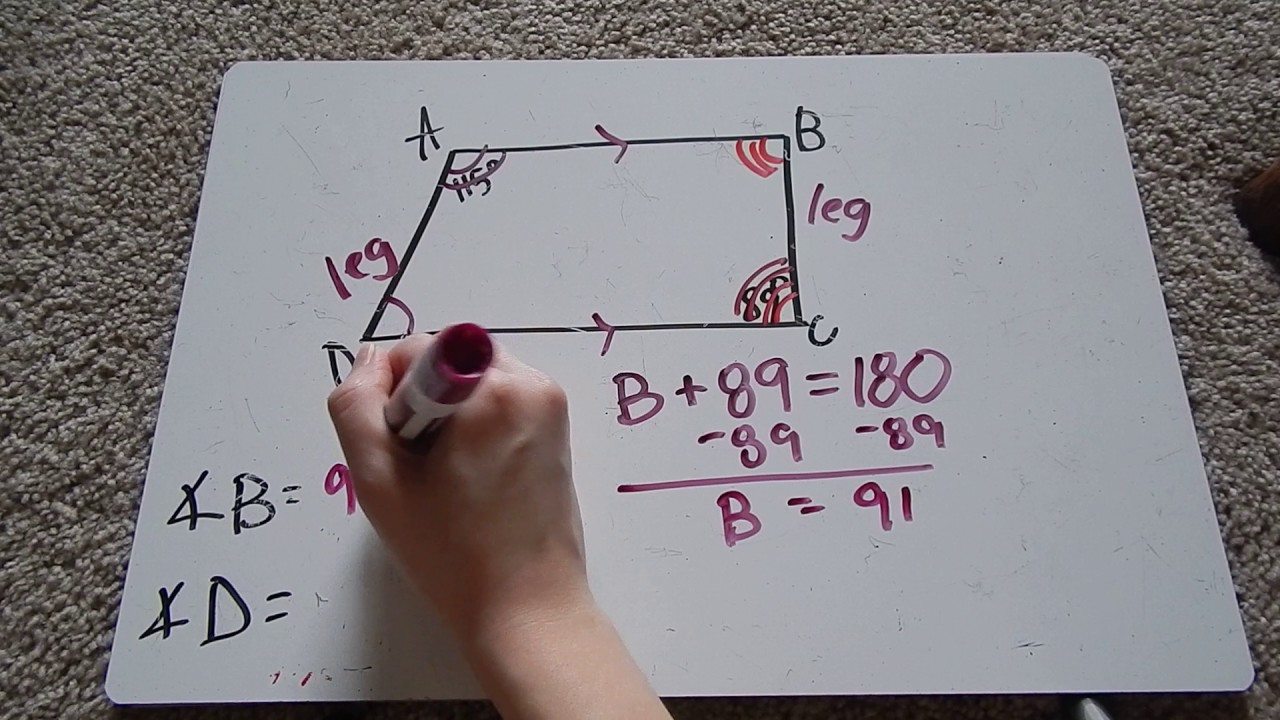 A B
115°
leg leg
89
D C
B + 89 = 180
-89 -89
∡B = 9
B = 91
∡D =